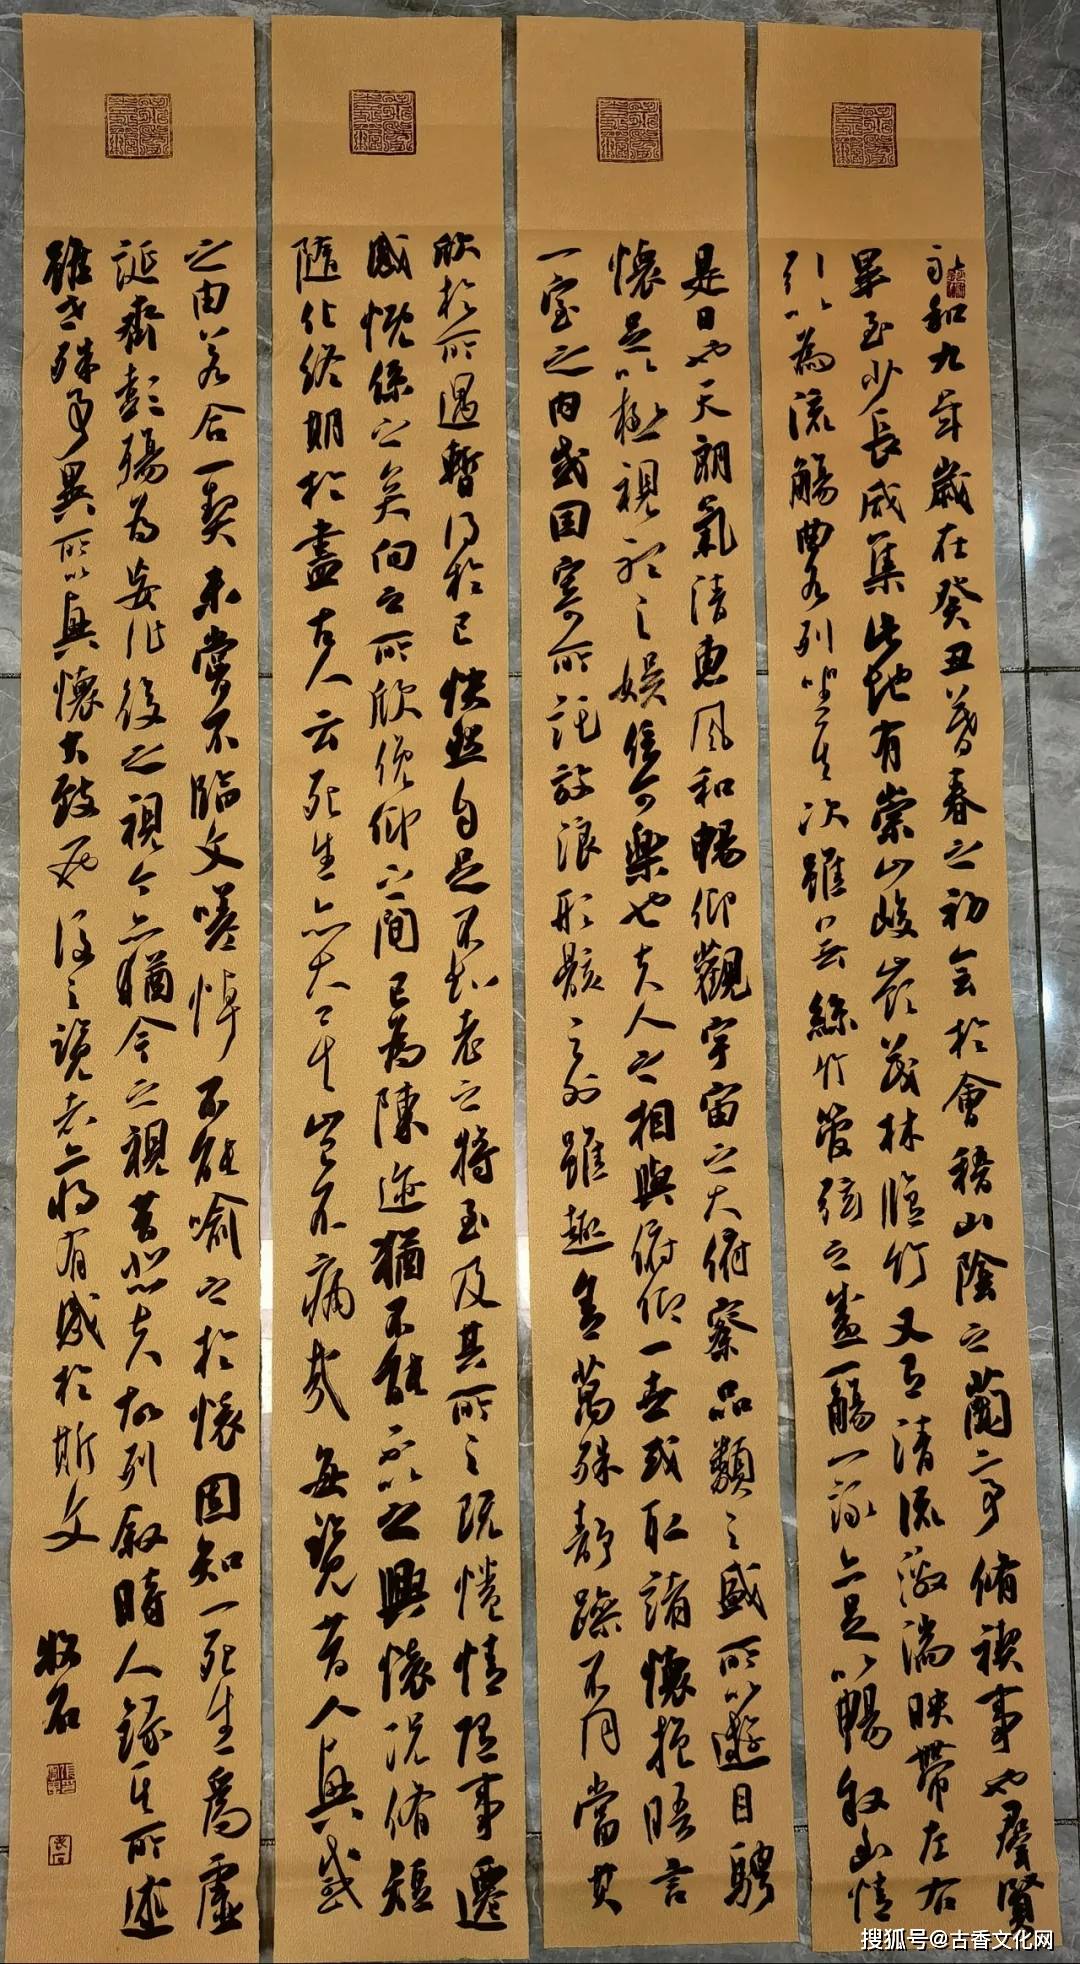 永和九年歲在癸丑暮春之初會於會稽山陰之蘭亭脩禊事也羣賢
畢至少長咸集此地有崇山峻嶺茂林脩竹又有清流激湍映帶左右
引以為流觴曲水列坐其次雖無絲竹管弦之盛一觴一詠亦足以暢敘幽情
是日也天朗氣清惠風和暢仰觀宇宙之大俯察品類之盛所以遊目騁
懷足以極視聽之娛信可樂也夫人之相與俯仰一世或取諸懷抱晤言
一室之內或因寄所託放浪形骸之外雖趣舍萬殊靜躁不同當其
欣於所遇暫得於己快然自足不知老之將至及其所之既惓情隨事遷
感慨係之矣向之所欣俛仰之間已為陳迹猶不能不以之興懷況脩短
隨化終期於盡古人云死生亦大矣豈不痛哉每覽昔人興感
之由若合一契未嘗不臨文嗟悼不能喻之於懷固知一死生為虛
誕齊彭殤為妄作後之視今亦猶今之視昔悲夫故列敘時人錄其所述
雖世殊事異所以興懷其致一也後之覽者亦將有感於斯文
牧石
搜狐号@古香文化网